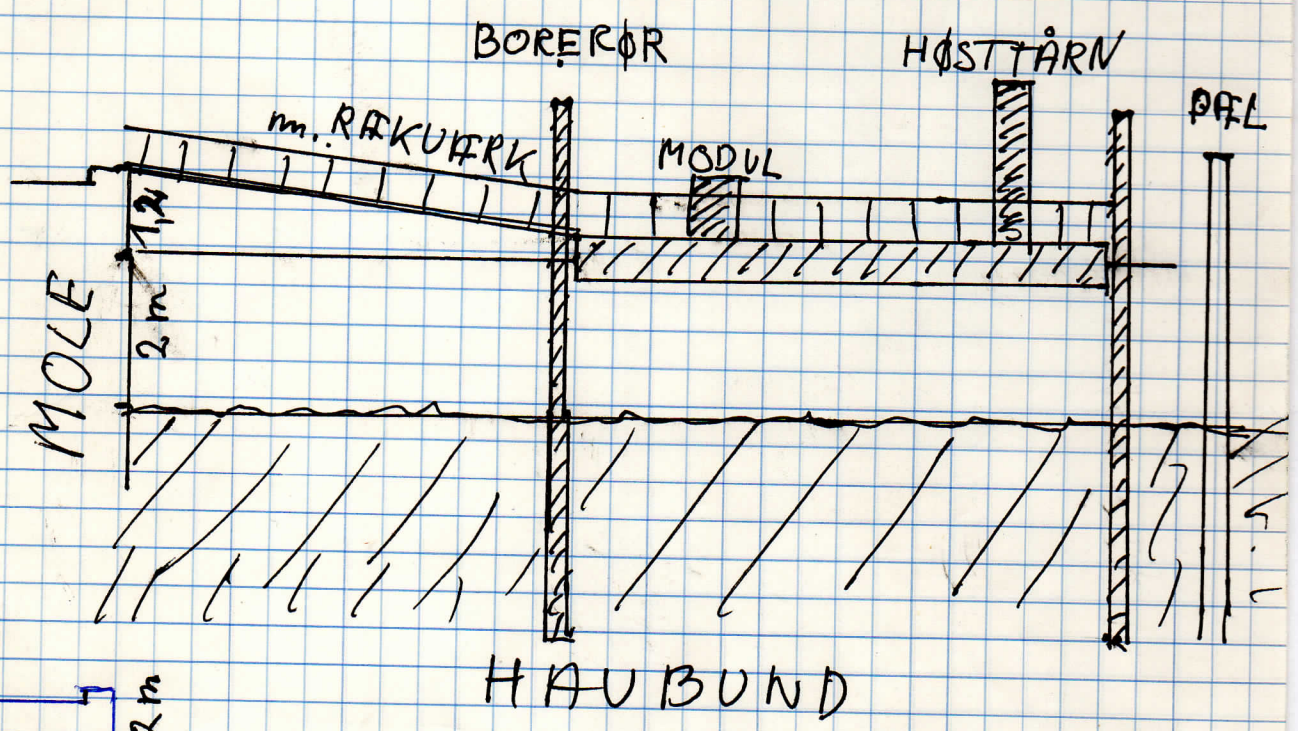 BORERØR
HØSTTÅRN
PÆL
m. RÆKVÆRK
MODUL
1,2
2 m
MOLE
HAVBUND
2 m